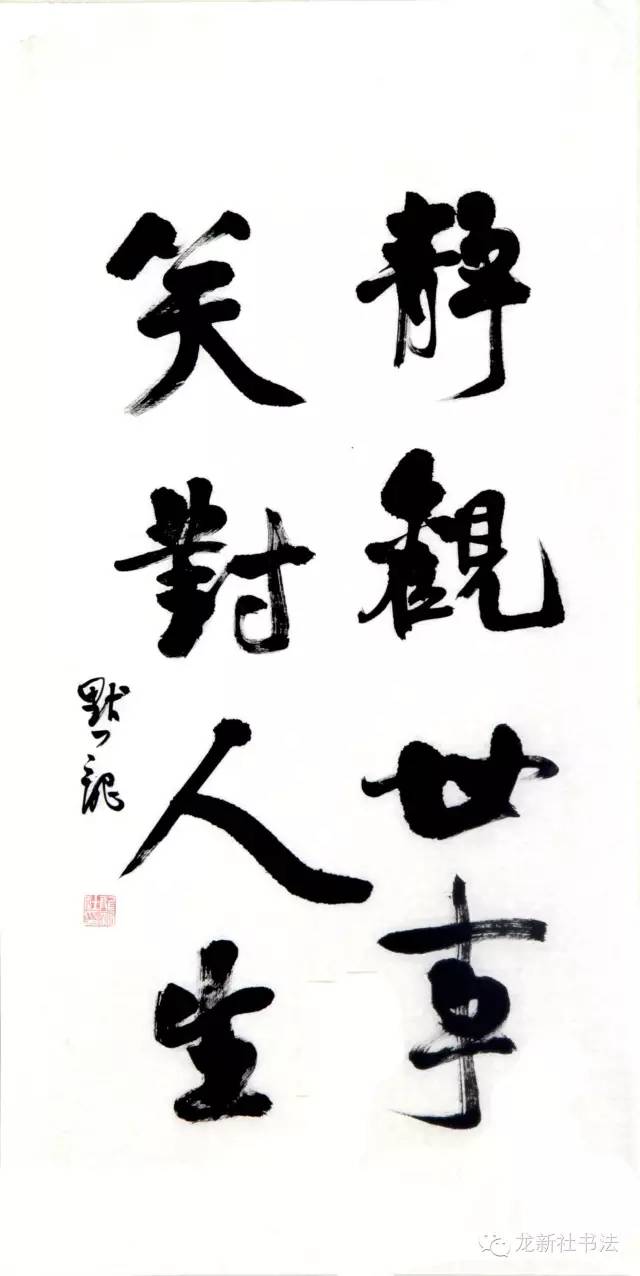 靜觀世事
笑對人生
默
龙新社书法